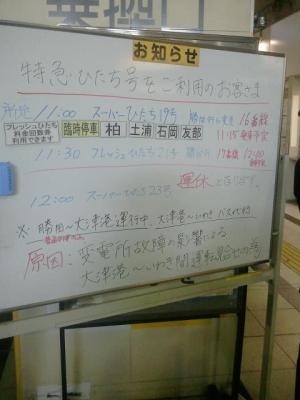 乗換口
お知らせ
特急ひたち号をご利用のお客さま
所定 11:00 スーパーひたち19号 勝田行に変更 16番線
フレッシュひたち
料金回数券
利用できます
臨時停車 柏 土浦 石岡 友部 11:15 発車予定
11:30 フレッシュひたち21号 勝田行 17番線 12:00
発車予定
12:00 スーパーひたち23号 運休となります。
※勝田〜大津港運行中、大津港〜いわき バス代行
原因:変電所故障の影響による
大津港〜いわき間運転見合せの為